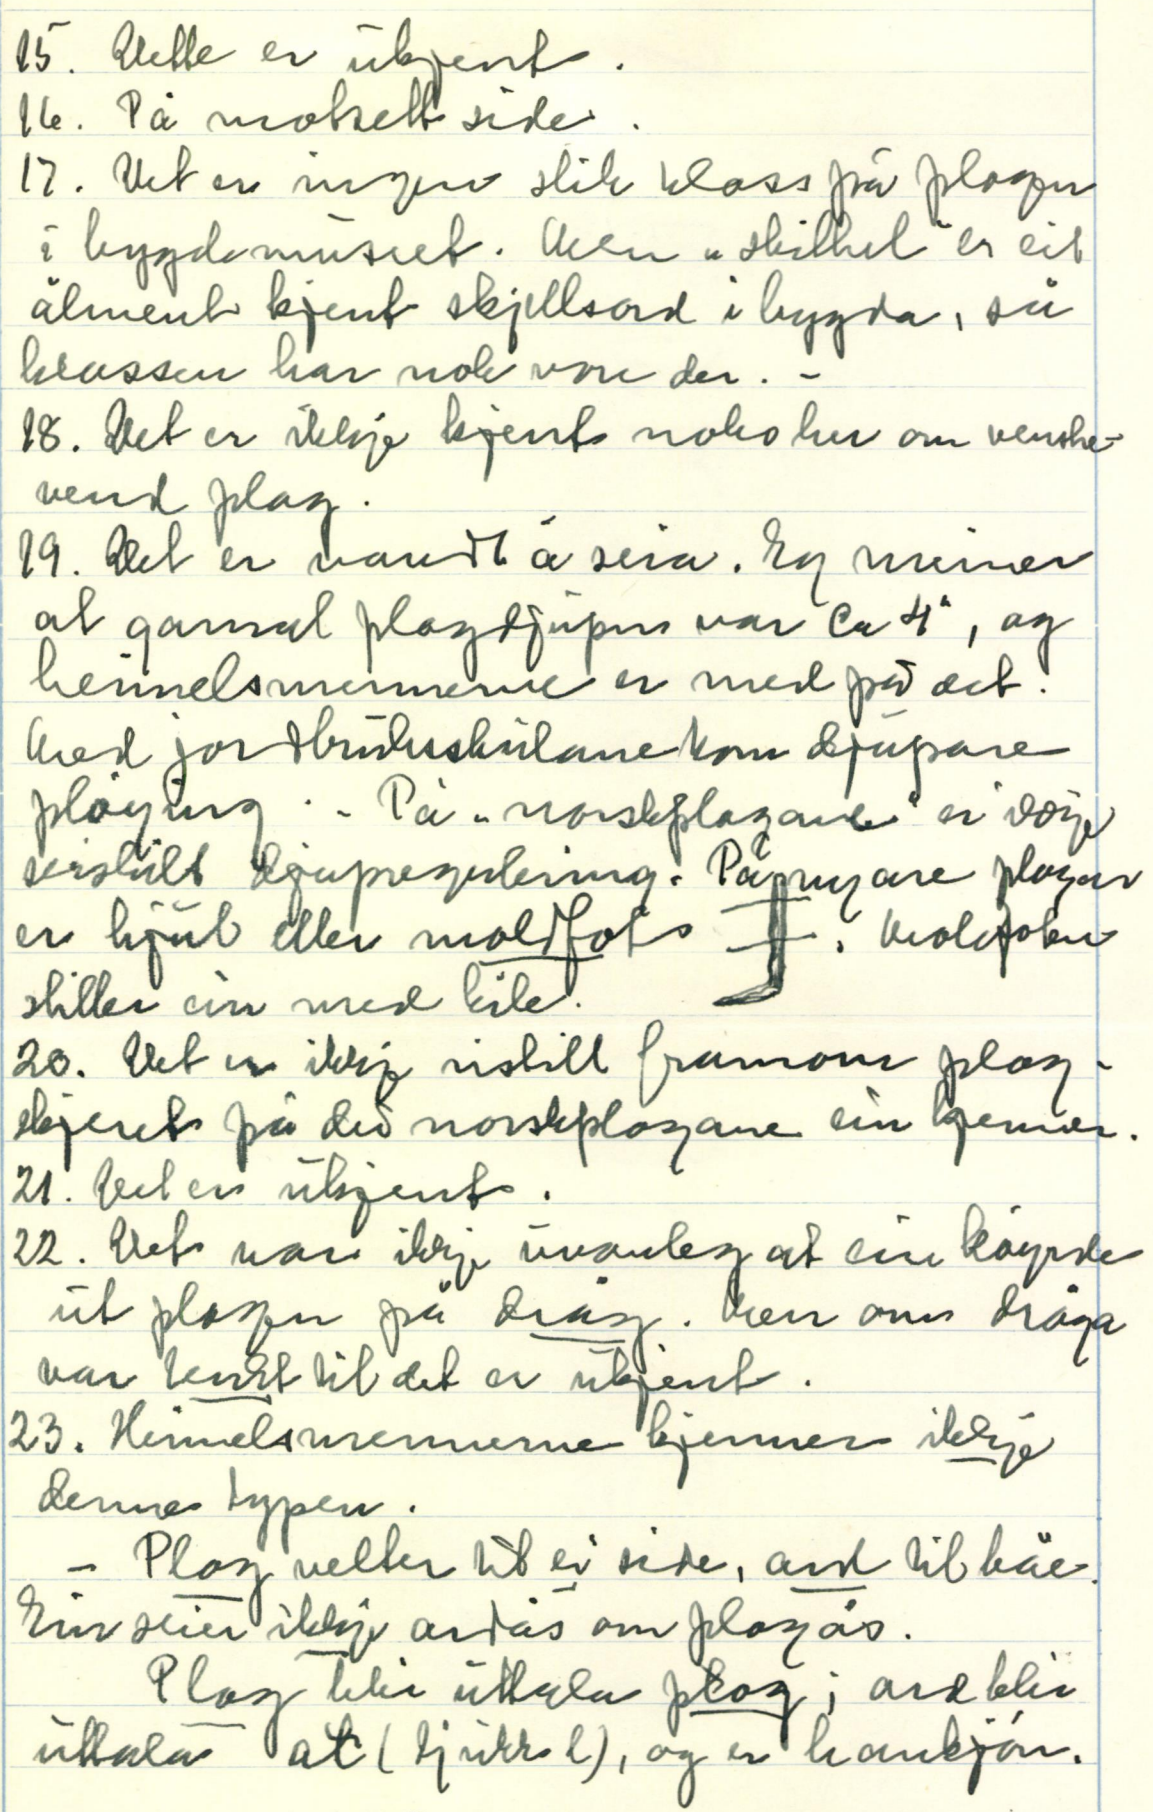 15. Dette er ukjent.
16. På motsett side.
17. Det er ingen slik kloss på plogen
i bygdemuseet. Men "skithel" er eit
ålment kjent skjellsord i bygda, så
klossen har nok vore der. -
18. Det er ikkje kjent noko her om venstre-
vend plog.
19. Det er vandt å seia. Eg meiner
at gamal plogdjupn var ca 4", og
heimelsmennene er med på det.
Med jordbruksskulane kom djupare
pløying. - På "norskplogane" er ikkje
serskilt djupregulering. På nyare plogar
er hjul eller moldfot. Moldfoten
stiller ein med kile.
20. Det er ikkje ristill framom plog-
skjeret på dei norskplogane ein kjenner.
21. Det er ukjent.
22. Det var ikkje uvanleg at ein køyrde
ut plogen på dråg. Men om dråga
var tenkt til det er ukjent.
23. Heimelsmennene kjenner ikkje
denne typen.
- Plog velter til ei side, ard til båe.
Ein seier ikkje ardås om plogås.
Plog blir uttala plog; ard blir
uttala al (tjukk l), og er hankjøn.